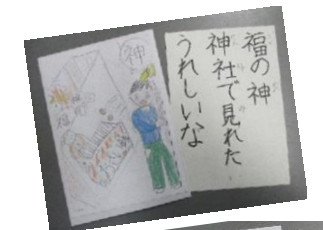 福の神
神社で見れた
うれしいな
神